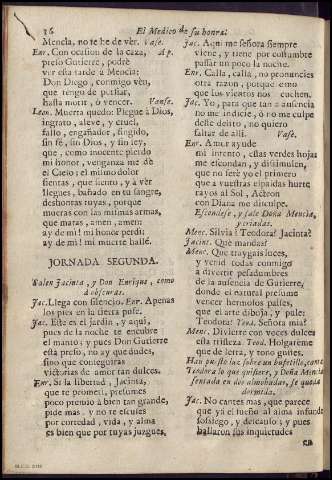 16
El Medico de su honra:
Mencia, no te he de vèr. Vase.
Enr. Con ocasion de la caza, Ap.
preso Gutierre, podrè
vèr esta tarde à Mencia:
Don Diego, conmigo vèn,
que tengo de porfiar,
hasta morir, ò vencer. Vanse.
Leon. Muerta quedo: Plegue à Dios,
ingrato, aleve, y cruel,
falso, engañador, fingido,
sin fé, sin Dios, y sin ley,
que, como inocente pierdo
mi honor, venganza me dè
el Cielo: el mismo dolor
sientas, que siento, y à vèr
llegues, bañado en tu sangre,
deshonras tuyas, porque
mueras con las mismas armas,
que matas, amen, amen:
ay de mi! mi honor perdì:
ay de mi! mi muerte hallè.
JORNADA SEGUNDA.
Salen Jacinta, y Don Enrique, como
à obscuras.
Jac. Llega con silencio. Enr. Apenas
los pies en la tierra puse.
Jac. Este es el jardin, y aqui,
pues de la noche te encubre
el manto; y pues Don Gutierre
està preso, no ay que dudes,
sino que conseguiràs
victorias de amor tan dulces.
Enr. Si la libertad, Jacinta,
que te prometì, presumes
poco premio à bien tan grande,
pide mas, y no te escuses
por cortedad, vida, y alma
es bien que por tuyas juzgues.
Jac. Aqui me señora siempre
viene, y tiene por costumbre
passar un poco la noche.
Enr. Calla, calla, no pronuncies
otra razon, porque temo
que los vientos nos escuchen.
Jac. Yo, para que tanta ausencia
no me indicie, ò no me culpe
deste delito, no quiero
faltar de allì. Vase.
Enr. Amor ayude
mi intento, estas verdes hojas
me escondan, y dissimulen,
que no serè yo el primero
que à vuestras espaldas hurte
rayos al Sol, Acteon
con Diana me disculpe.
Escondese, y sale Doña Mencia,
y criadas.
Menc. Silvia! Teodora! Jacinta?
Jacint. Què mandas?
Menc. Que traygais luces,
y venid todas conmigo
à divertir pesadumbres
de la ausencia de Gutierre,
donde el natural presume
vencer hermosos paìses,
que el arte dibuja, y pule:
Teodora! Teod. Señora mia?
Menc. Divierte con voces dulces
esta tristeza. Teod. Holgarème
que de letra, y tono gustes.
Han puesto luz sobre un bufetillo, canta
Teodora lo que quisiere, y Doña Mencia
sentada en dos almohadas, se queda
dormida.
Jac. No cantes mas, que parece
que yà el sueño al alma infunde
sossiego, y descanso; y pues
hallaron sus inquietudes